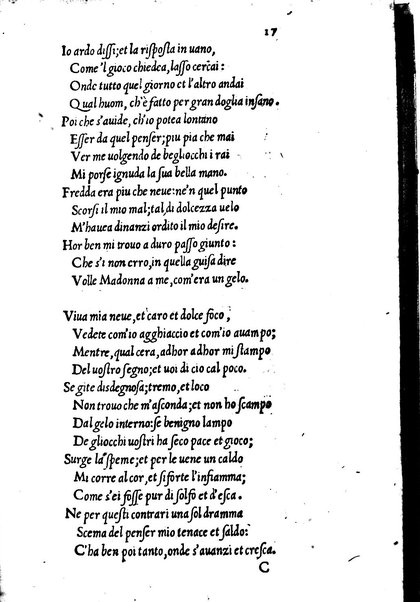 17
Io ardo dissi; et la risposta in uano,
Come 'l gioco chiedea, lasso cercai:
Onde tutto quel giorno et l'altro andai
Qual huom, ch'è fatto per gran doglia insano.
Poi che s'auide, ch'io potea lontano
Esser da quel penser; piu pia che mai
Ver me uolgendo de begliocchi i rai
Mi porse ignuda la sua bella mano.
Fredda era piu che neue: ne'n quel punto
Scorsi il mio mal; tal, di dolcezza uelo
M'hauea dinanzi ordito il mio desire.
Hor ben mi trouo a duro passo giunto:
Che s'i non erro, in quella guisa dire
Volle Madonna a me, com'era un gelo.
Viua mia neue, et caro et dolce foco,
Vedete com'io agghiaccio et com'io auampo;
Mentre, qual cera, adhor adhor mi stampo
Del uostro segno; et uoi di cio cal poco.
Se gite disdegnosa; tremo, et loco
Non trouo che m'asconda; et non ho scampo
Dal gelo interno: se benigno lampo
De gliocchi uostri ha seco pace et gioco;
Surge la speme; et per le uene un caldo
Mi corre al cor, et si forte l'infiamma;
Come s'ei fosse pur di solfo et d'esca.
Ne per questi contrari una sol dramma
Scema del penser mio tenace et saldo:
C'ha ben poi tanto, onde s'auanzi et cresca.
C